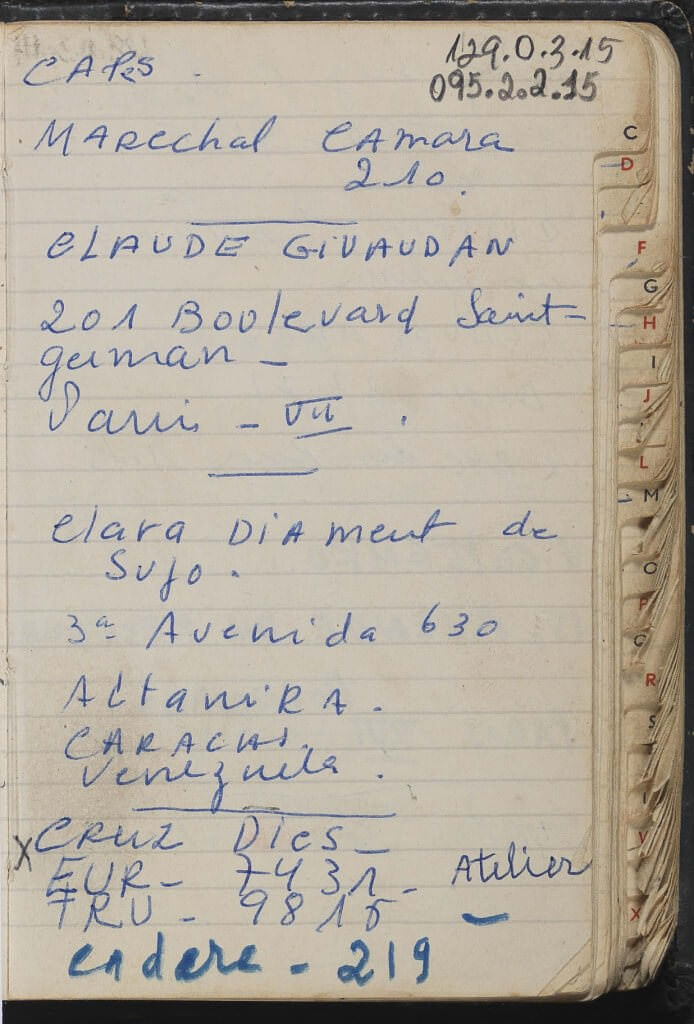 129.0.3.15
095.2.2.15
CAPS
MARechal CAmara
210.
CLAUDE GIVAUDAN
201 Boulevard Saint-
german -
Paris - VII.
Clara DiAment de
Sujo.
3ª Avenida 630
AltamiRA.
CARACAS.
Venezuela.
x CRUZ Dies -
EUR - 7431 - Atelier
TRU - 9815 -
endere - 219
C
D
F
G
H
I
J
L
M
O
P
Q
R
S
V
X